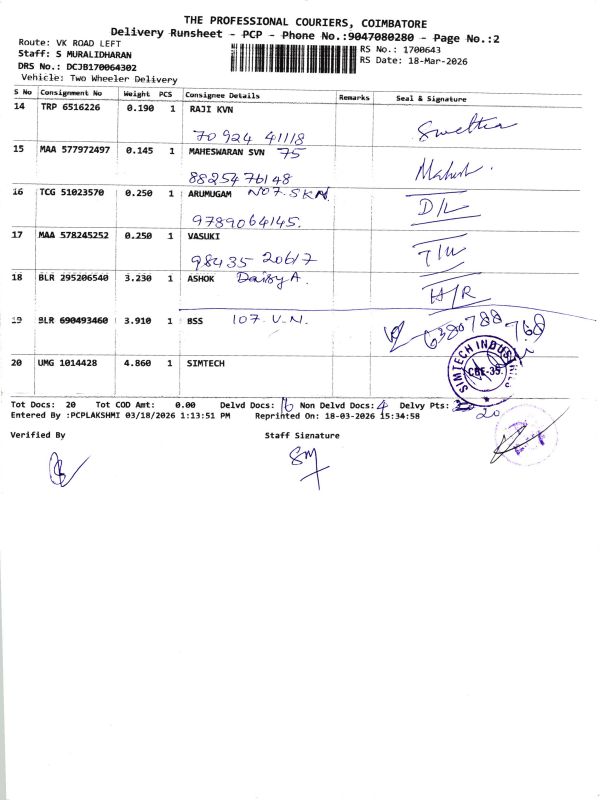 THE PROFESSIONAL COURIERS, COIMBATORE
Delivery Runsheet - PCP - Phone No.:9047080280 - Page No.:2
Route: VK ROAD LEFT
RS No.: 1700643
Staff: S MURALIDHARAN
RS Date: 18-Mar-2026
DRS No.: DCJB170064302
Vehicle: Two Wheeler Delivery
S No Consignment No Weight PCS Consignee Details Remarks Seal & Signature
14 TRP 6516226 0.190 1 RAJI KVN
70 924 41118
15 MAA 577972497 0.145 1 MAHESWARAN SVN 75
8825476148
16 TCG 51023570 0.250 1 ARUMUGAM NO7.SKN.
9789064145. D/L
17 MAA 578245252 0.250 1 VASUKI
98435 20617
18 BLR 295206540 3.230 1 ASHOK Daisy A.
H/R
19 BLR 690493460 3.910 1 BSS 107.V.N.
6380788 768
20 UMG 1014428 4.860 1 SIMTECH
SIMTECH INDUSTRIES
CBE-35.
Tot Docs: 20 Tot COD Amt: 0.00 Delvd Docs: 16 Non Delvd Docs: 4 Delvy Pts: 20
Entered By :PCPLAKSHMI 03/18/2026 1:13:51 PM Reprinted On: 18-03-2026 15:34:58
Verified By Staff Signature